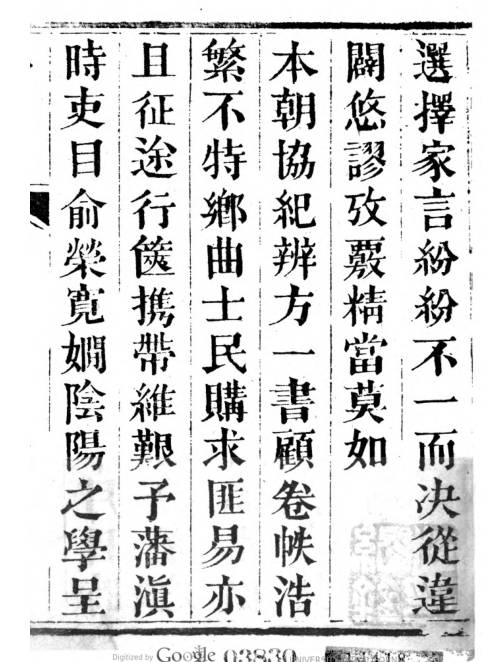 選擇家言紛紛不一而決從違
闢悠謬攷覈精當莫如
本朝協紀辨方一書顧卷帙浩
繁不特鄉曲士民購求匪易亦
且征途行篋攜帶維艱予藩滇
時吏目俞榮寬嫺陰陽之學呈
Digitized by Google
03830
UNIVERSITY